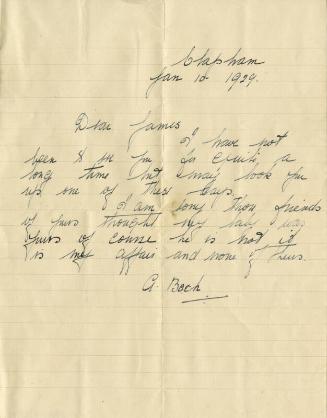 Clapham
Jan 10 1929.
Dear James
I have not
been to see you for a
long time but I may look you
up one of these days.
I am sorry those friends
of yours thought my baby was
yours of course he is not, it
is my affair and none of theirs.
A. Boch